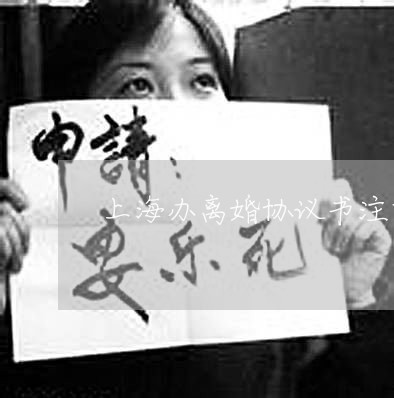 申請：
上海办离婚协议书注
安乐死